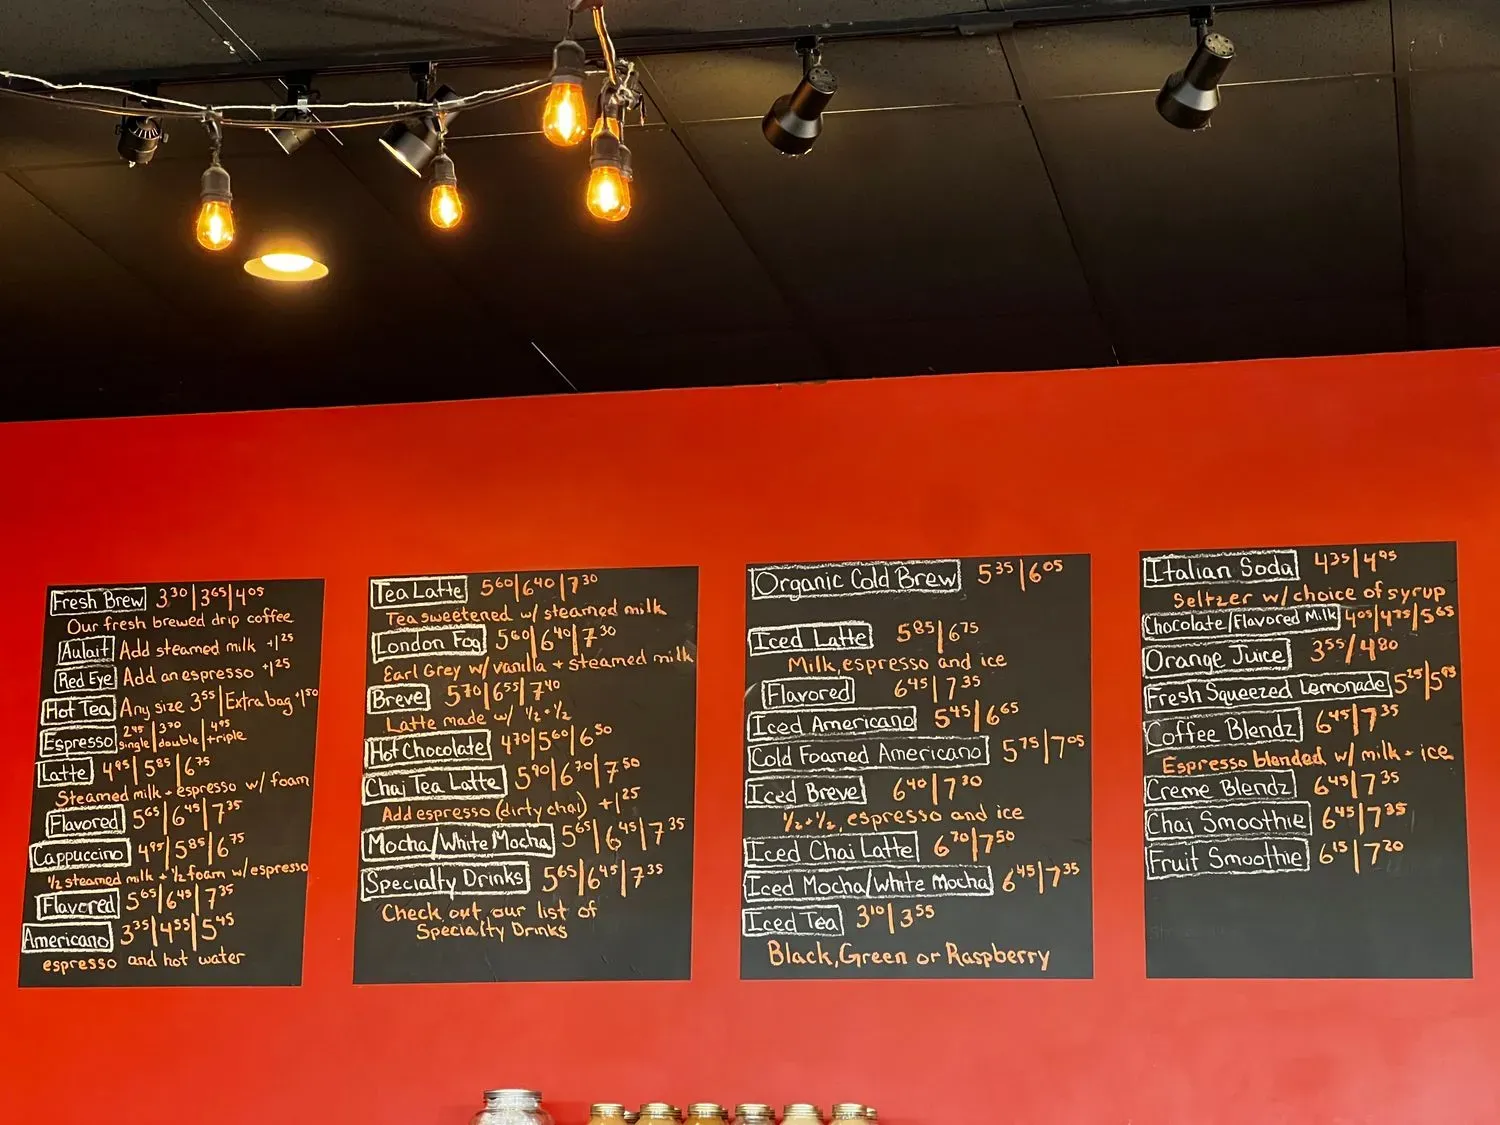 Fresh Brew 3.30|3.65|4.05
Our fresh brewed drip coffee
Aulait Add steamed milk +1.25
Red Eye Add an espresso +1.25
Hot Tea Any size 3.55|Extra bag +1.50
Espresso 2.45 single|3.70 double|4.95 triple
Latte 4.95|5.85|6.75
Steamed milk + espresso w/ foam
Flavored 5.65|6.45|7.35
Cappuccino 4.95|5.85|6.75
1/2 steamed milk + 1/2 foam w/espresso
Flavored 5.65|6.45|7.35
Americano 3.35|4.55|5.45
espresso and hot water
Tea Latte 5.60|6.40|7.30
Tea sweetened w/ steamed milk
London Fog 5.60|6.40|7.30
Earl Grey w/vanilla + steamed milk
Breve 5.70|6.55|7.40
Latte made w/ 1/2+1/2
Hot Chocolate 4.70|5.60|6.50
Chai Tea Latte 5.90|6.70|7.50
Add espresso (dirty chai) +1.25
Mocha/White Mocha 5.65|6.45|7.35
Specialty Drinks 5.65|6.45|7.35
Check out our list of
Specialty Drinks
Organic Cold Brew 5.35|6.05
Iced Latte 5.85|6.75
Milk, espresso and ice
Flavored 6.45|7.35
Iced Americano 5.45|6.65
Cold Foamed Americano 5.75|7.05
Iced Breve 6.40|7.30
1/2+1/2, espresso and ice
Iced Chai Latte 6.70|7.50
Iced Mocha/White Mocha 6.45|7.35
Iced Tea 3.10|3.55
Black, Green or Raspberry
Italian Soda 4.35|4.95
Seltzer w/ choice of syrup
Chocolate/Flavored Milk 4.05|4.75|5.65
Orange Juice 3.55/4.80
Fresh Squeezed Lemonade 5.25
Coffee Blendz 6.45|7.35
Espresso blended w/ milk + ice
Creme Blendz 6.45|7.35
Chai Smoothie 6.45|7.35
Fruit Smoothie 6.15|7.20